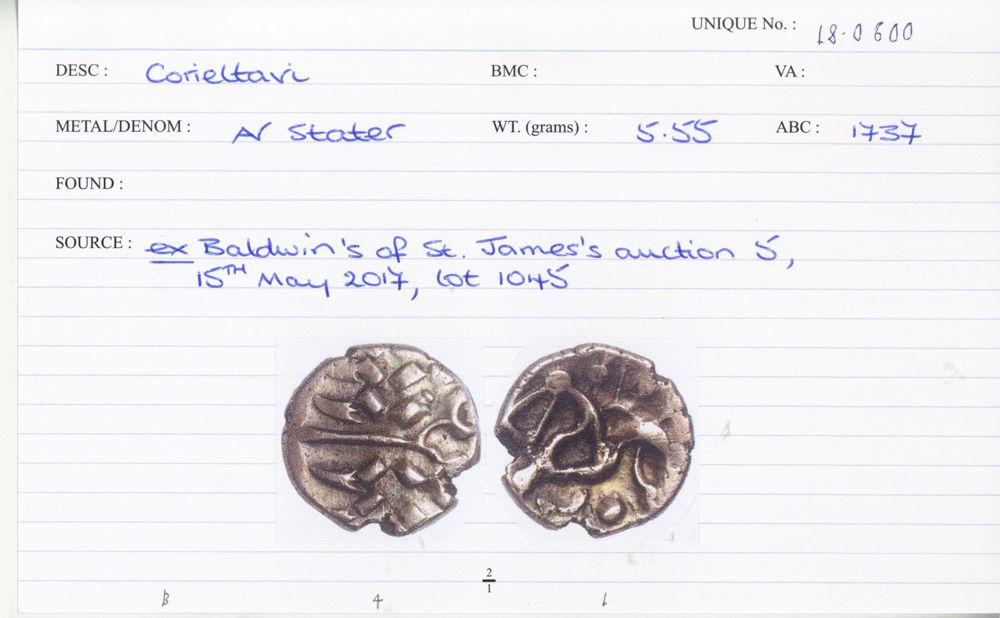 UNIQUE No. : 18-0600
DESC : Corieltavi BMC : VA :
METAL/DENOM : AV Stater WT. (grams) : 5.55 ABC : 1737
FOUND :
SOURCE : ex Baldwin's of St. James's auction 5,
15TH May 2017, lot 1045
2
1
B 4 L